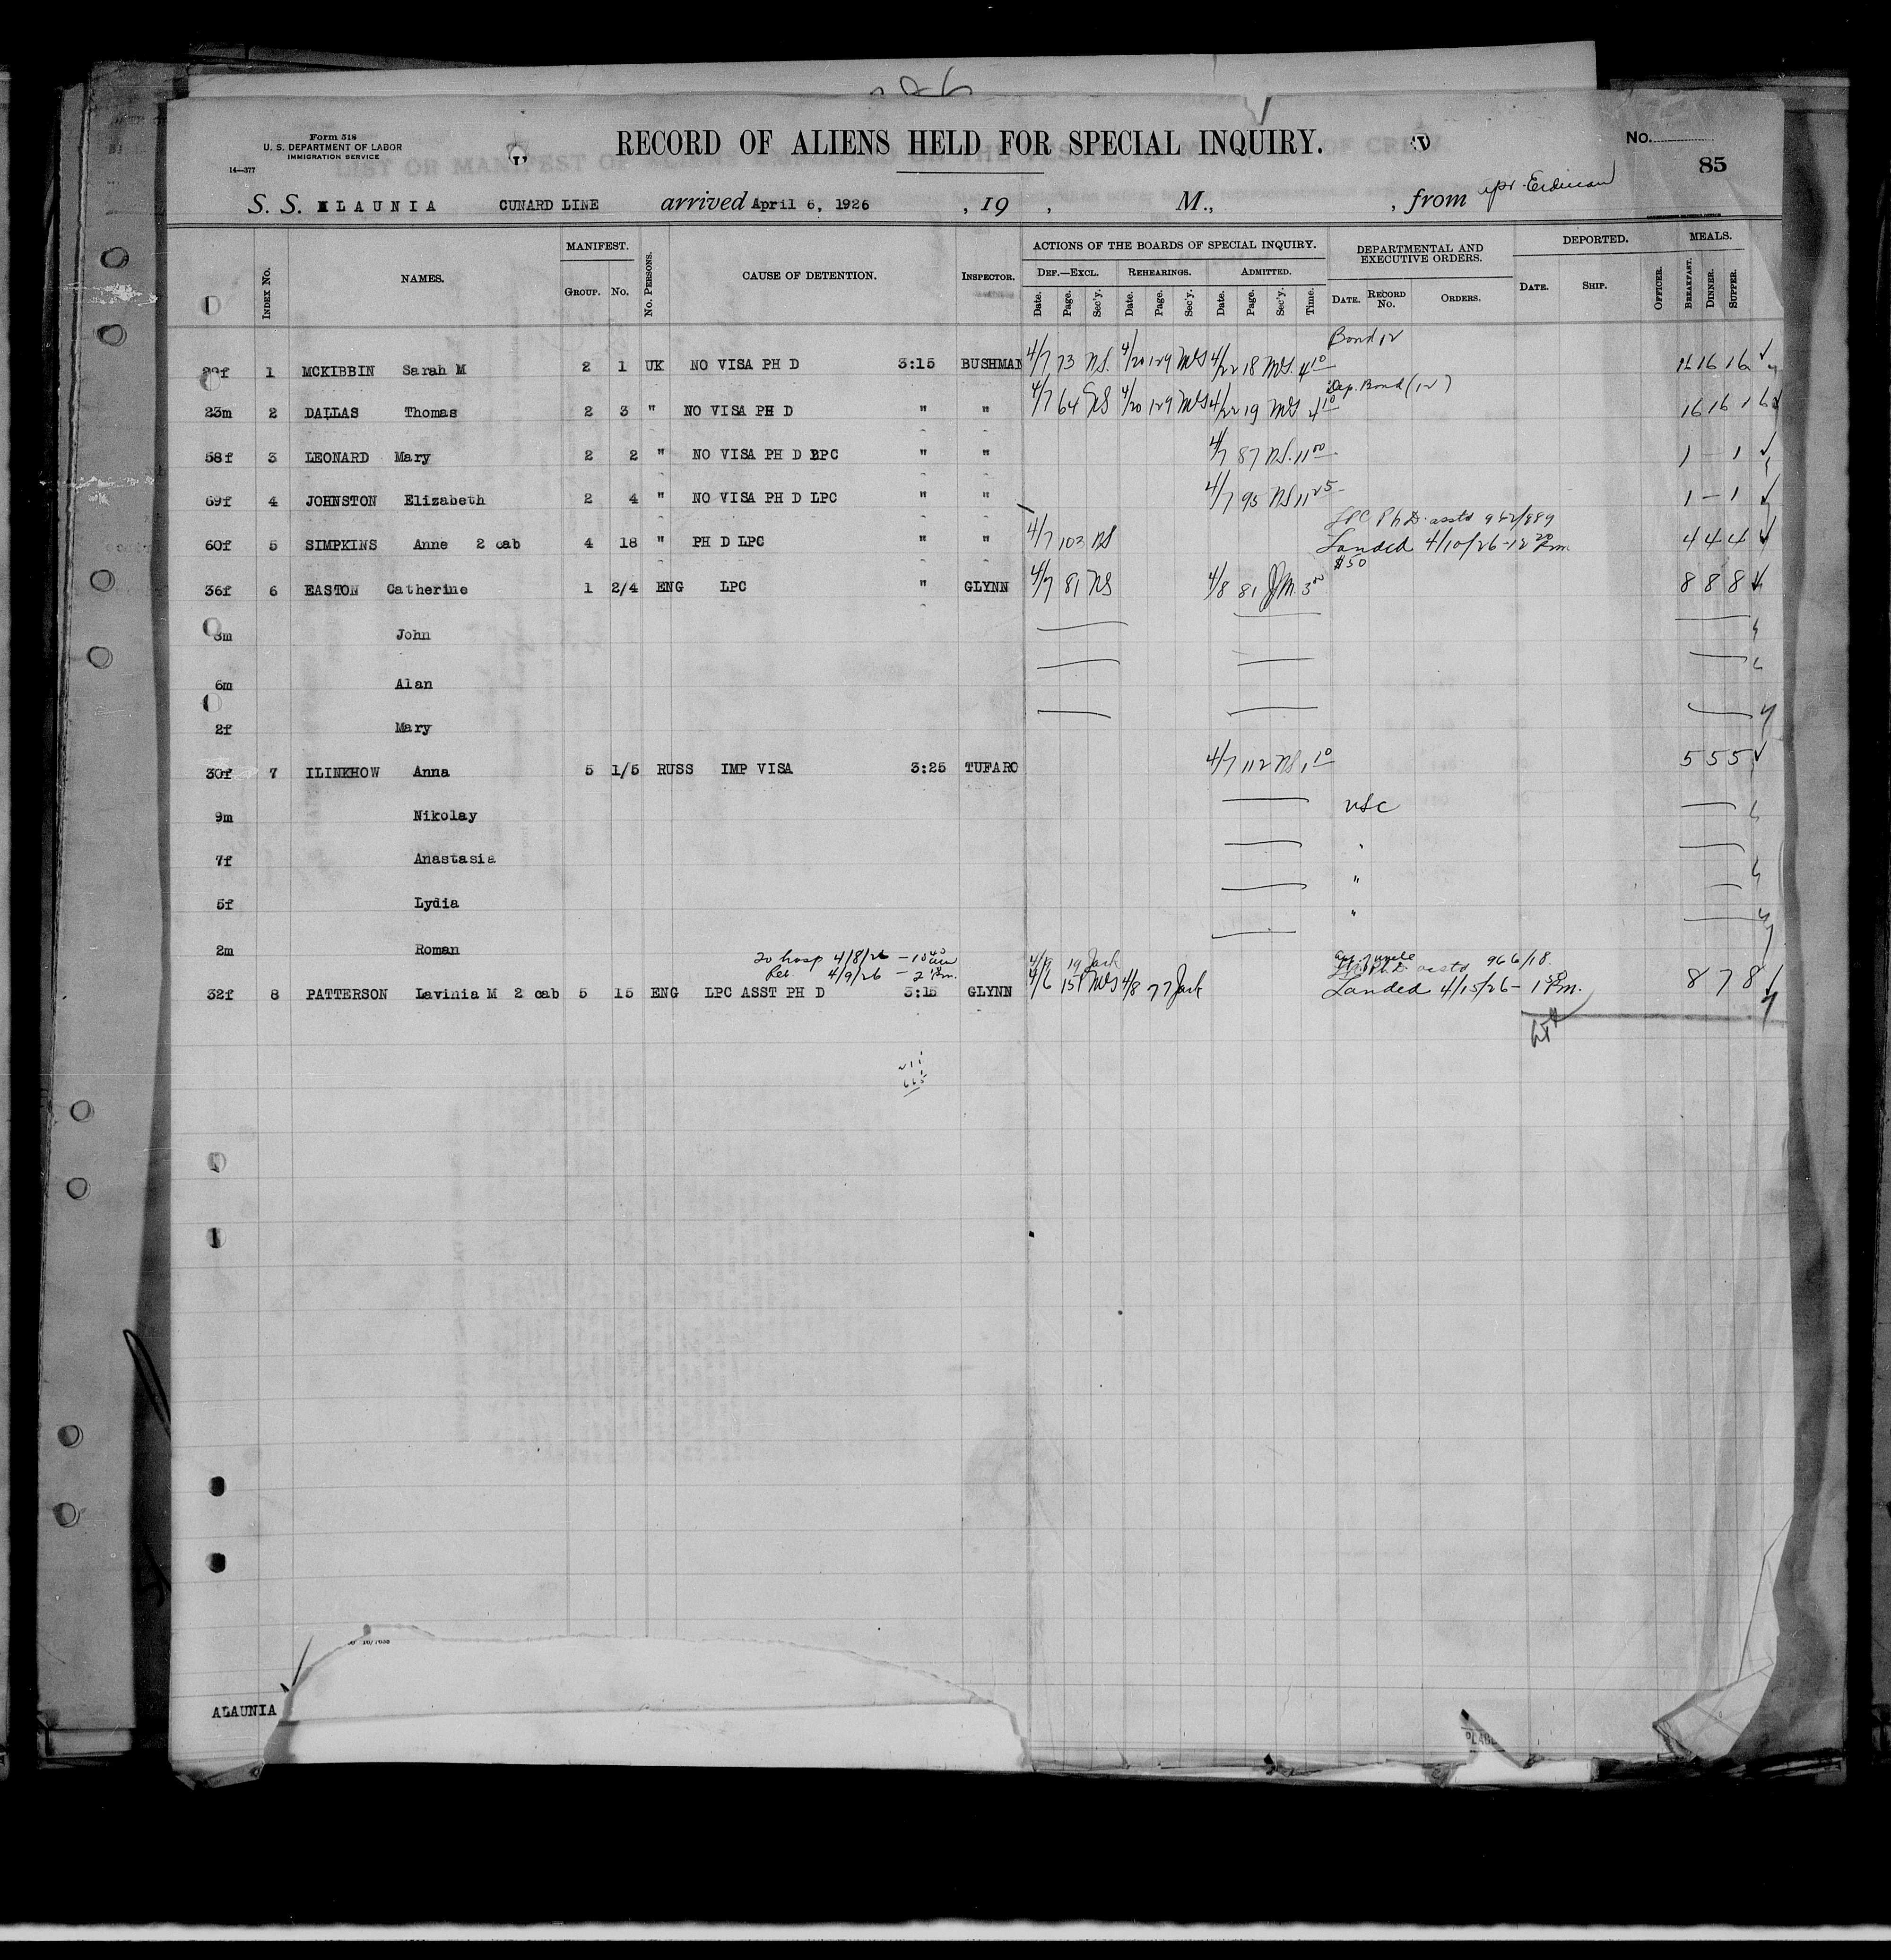 Form 518
U. S. DEPARTMENT OF LABOR
IMMIGRATION SERVICE
14—377
RECORD OF ALIENS HELD FOR SPECIAL INQUIRY.
No.
85
S. S. ALAUNIA CUNARD LINE arrived April 6, 1926 , 19 , M., , from
INDEX No. NAMES. MANIFEST. GROUP. No. No. PERSONS. CAUSE OF DETENTION. INSPECTOR. ACTIONS OF THE BOARDS OF SPECIAL INQUIRY. DEPARTMENTAL AND EXECUTIVE ORDERS. DEPORTED. MEALS.
DEF.—EXCL. REHEARINGS. ADMITTED.
Date. Page. Sec'y. Date. Page. Sec'y. Date. Page. Sec'y. Time. DATE. RECORD No. ORDERS. DATE. SHIP. OFFICER. BREAKFAST. DINNER. SUPPER.
Bond
1 MCKIBBIN Sarah M 2 1 UK NO VISA PH D 3:15 BUSHMAN 4/7 73 NS. 4/20 129 MS 4/22 18 MS. 4 10 16 16 16 ✓
Dep. Bond (12)
23m 2 DALLAS Thomas 2 3 " NO VISA PH D " " 4/7 64 NS 4/20 129 MS 4/22 19 MS 4 10 16 16 16
58f 3 LEONARD Mary 2 2 " NO VISA PH D LPC " " 4/7 87 NS. 11 00 1 — 1 ✓
69f 4 JOHNSTON Elizabeth 2 4 " NO VISA PH D LPC " " 4/7 95 NS 11 25 1 — 1 ✓
LPC Ph D. asstd 982/889
60f 5 SIMPKINS Anne 2 cab 4 18 " PH D LPC " " 4/7 103 NS Landed 4/10/26 - 12 20 Pm 4 4 4 ✓
$50
36f 6 EASTON Catherine 1 2/4 ENG LPC " GLYNN 4/7 81 NS 4/8 81 JM. 3 00 8 8 8 ✓
John
6m Alan
2f Mary
30f 7 ILINKHOW Anna 5 1/5 RUSS IMP VISA 3:25 TUFARO 4/7 112 NS 1 10 5 5 5 ✓
9m Nikolay USC
7f Anastasia "
5f Lydia "
2m Roman "
To hosp 4/8/26 — 10 40 am
Ret. 4/9/26 — 2 Pm. 4/9 19 Jack Ph. D. asstd 966/18.
32f 8 PATTERSON Lavinia M 2 cab 5 15 ENG LPC ASST PH D 3:15 GLYNN 4/6 151 MS 4/8 77 Jack Landed 4/15/26 - 1 50 Pm. 8 7 8 ✓
ALAUNIA